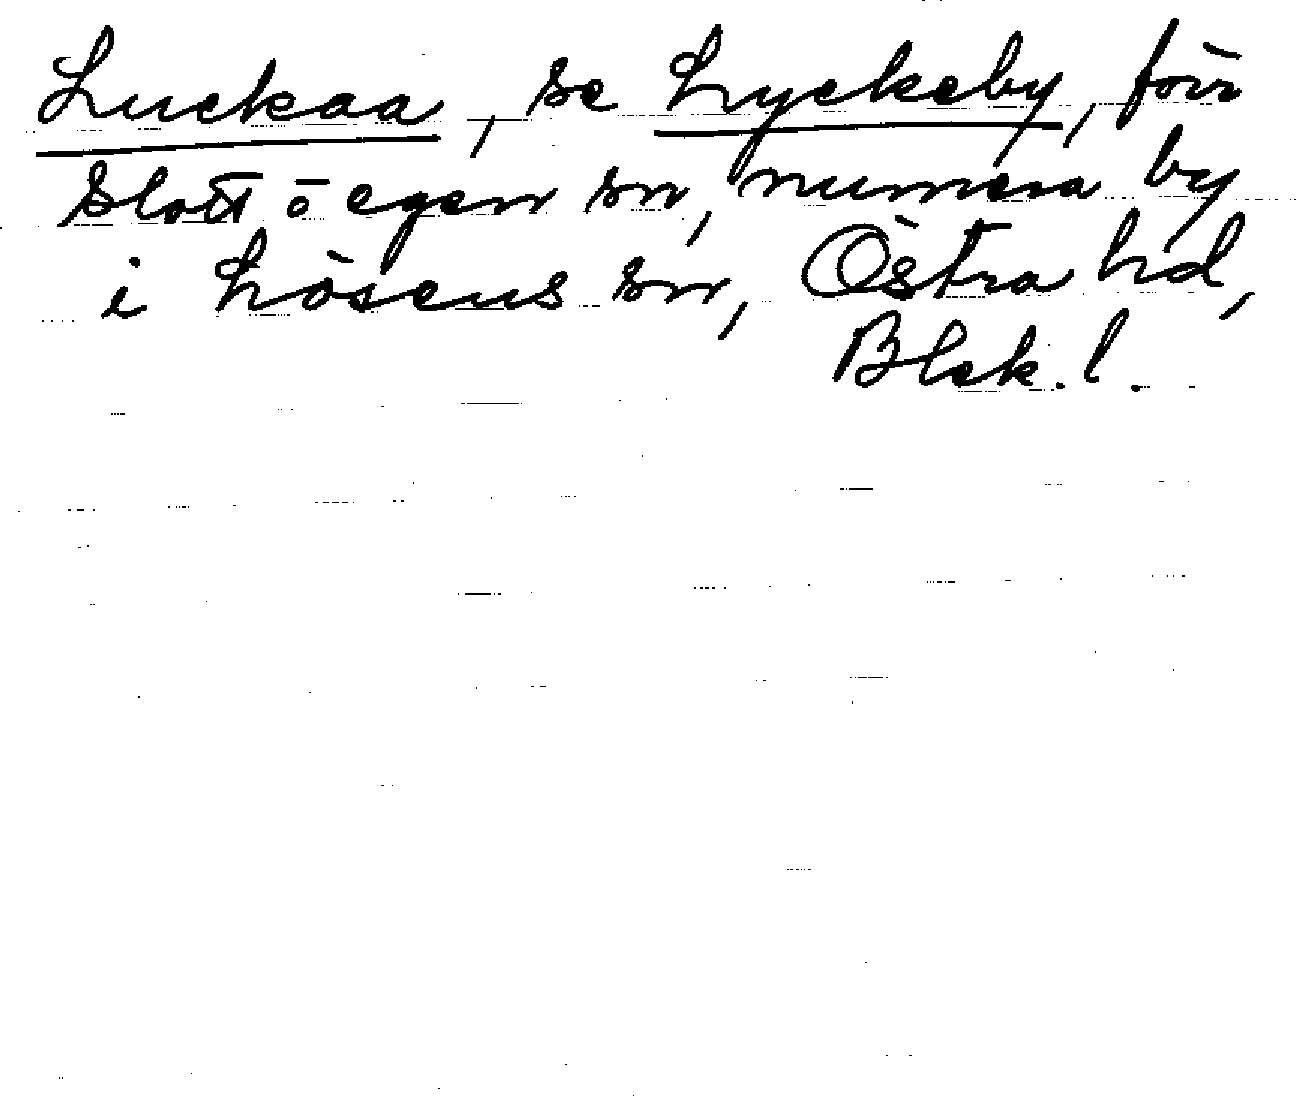 Luckaa, se Lyckeby, förr
slott o egen sn, numera by
i Lösens sn, Östra hd,
Blek. l.